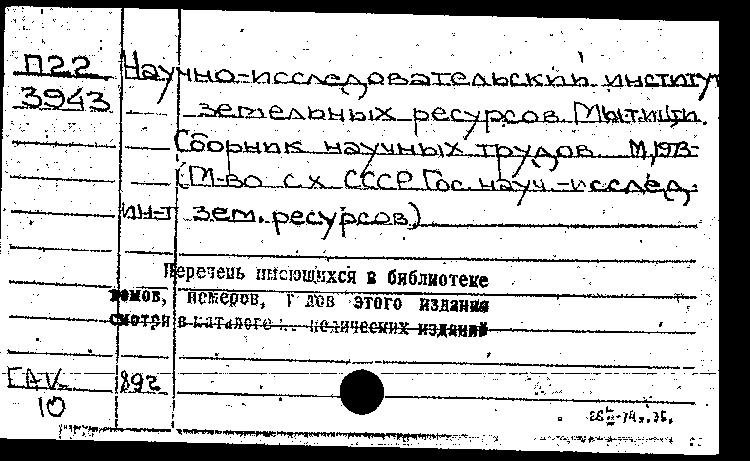 П22 Научно-исследовательский институт
3943 земельных ресурсов. Мытищи.
Сборник научных трудов. М, 1973-
(М-во с х СССР Гос. науч.-исслед.
ин-т зем. ресурсов)
Перечень имеющихся в библиотеке
томов, номеров, г дов этого издания
смотри в каталоге изданий
ГАК 892
10